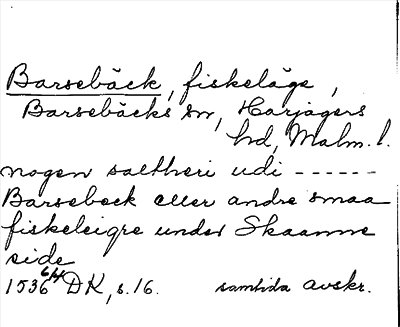 Barsebäck, fiskeläge,
Barsebäcks sn, Harjagers
hd, Malm. l.
nogen saltheri udi ------
Barsebeck eller andre smaa
fiskeleigre under Skaanne
side
1536 6/4 DK, s. 16. samtida avskr.